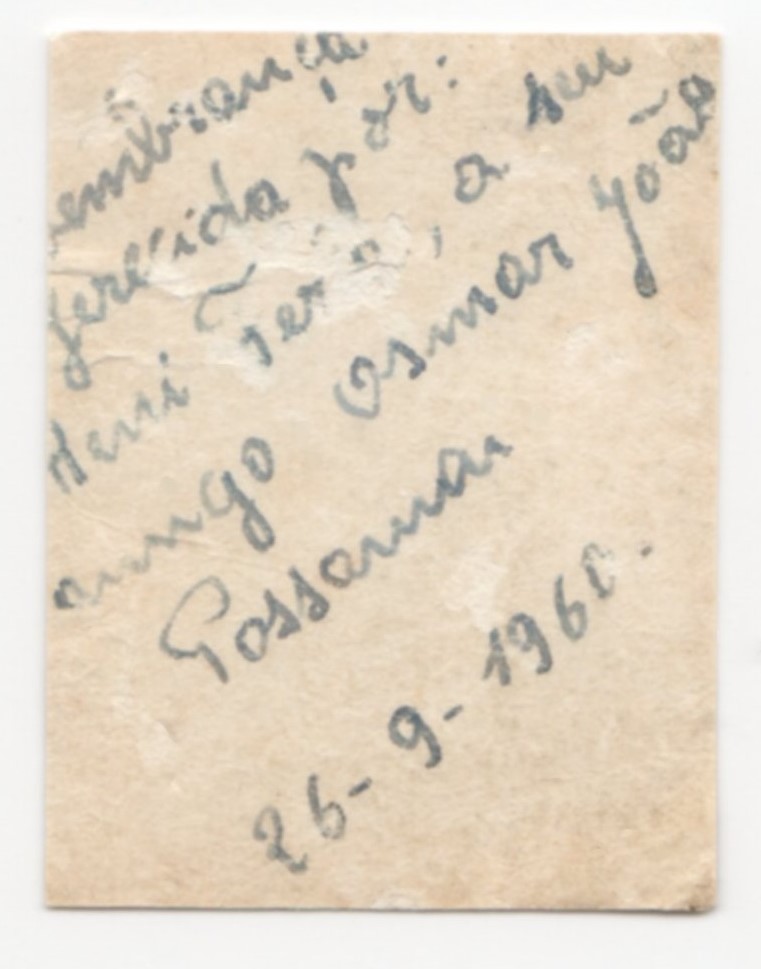 embrança
ferecida por:
a seu
amigo Osmar João
Possamai
26-9-1960.